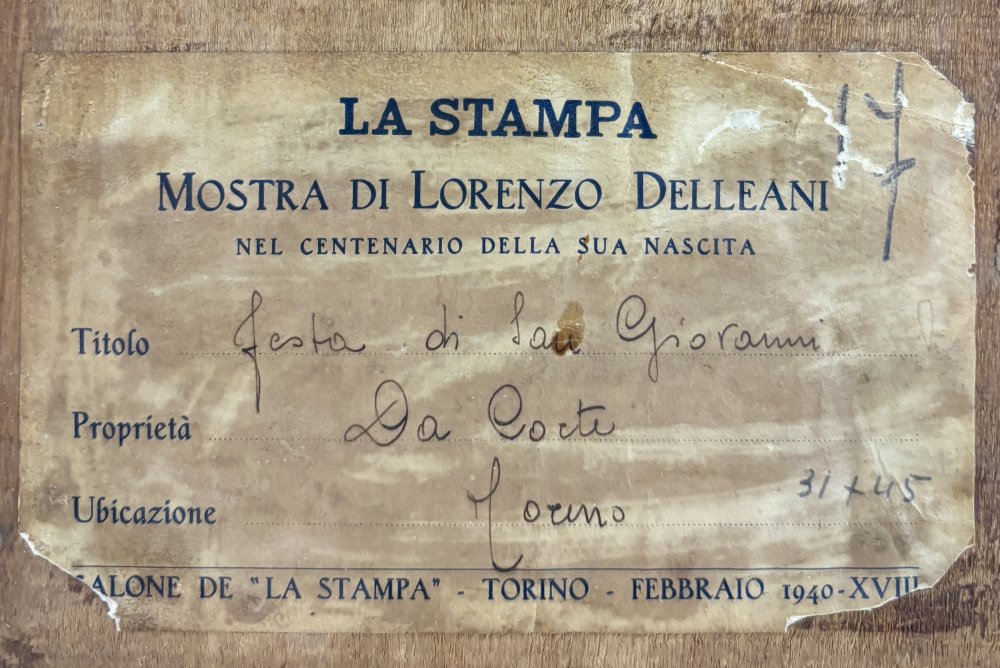 LA STAMPA
17
MOSTRA DI LORENZO DELLEANI
NEL CENTENARIO DELLA SUA NASCITA
Titolo Festa di San Giovanni
Proprietà Da Corte
Ubicazione Torino
31 x 45
SALONE DE "LA STAMPA" - TORINO - FEBBRAIO 1940-XVIII